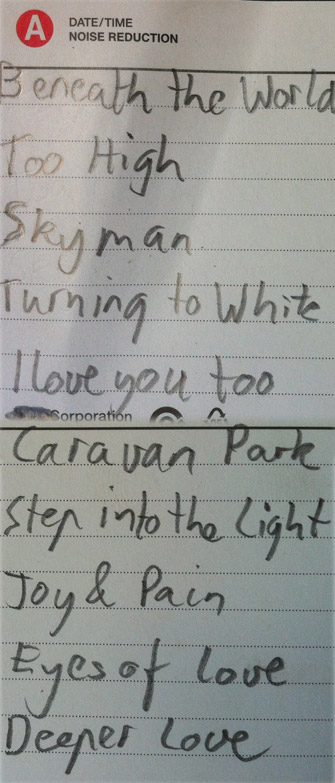 A
DATE/TIME
NOISE REDUCTION
Beneath the World
Too High
Skyman
Turning to White
I love you too
Corporation
Caravan Park
Step into the Light
Joy & Pain
Eyes of Love
Deeper Love